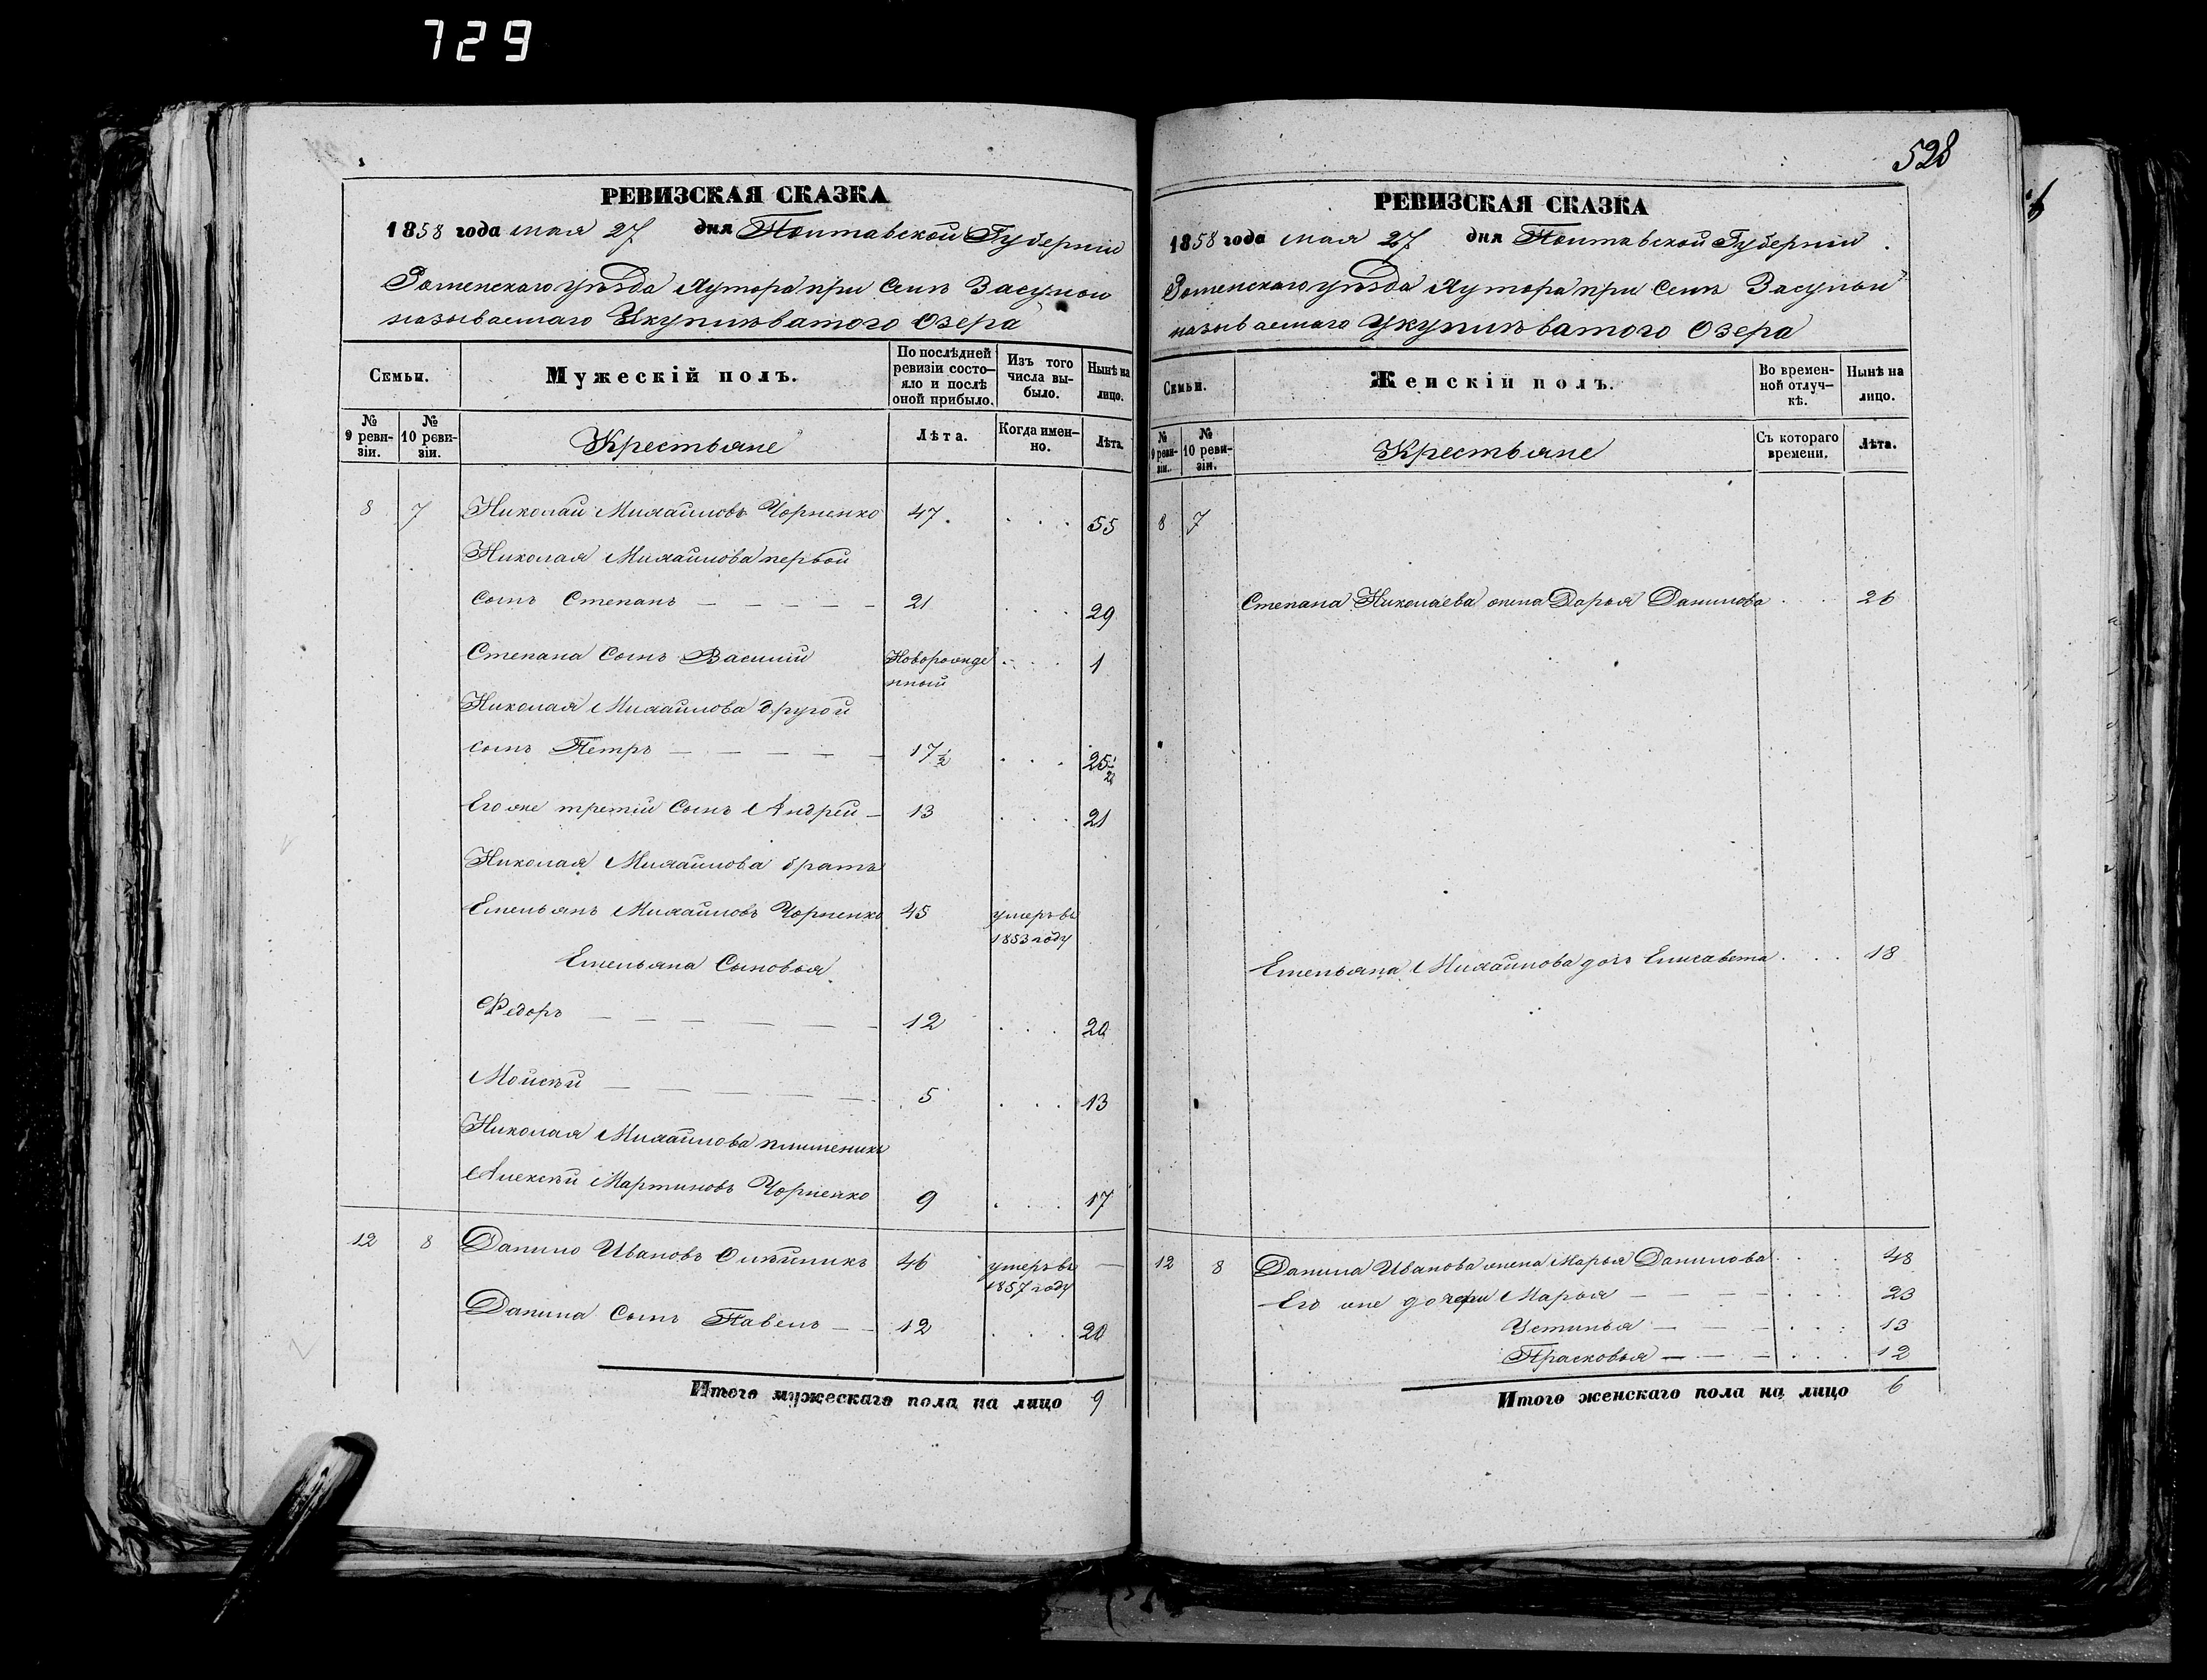 729
РЕВИЗСКАЯ СКАЗКА
1858 года мая 27 дня Полтавской Губернии
Роменскаго уѣзда Хутора при Селѣ Засульи
называемаго Укуплѣватого Озера
Семьи.
Мужескій полъ.
По послѣдней
ревизіи состо-
яло и послѣ
оной прибыло.
Изъ того
числа вы-
было.
Нынѣ на
лицо.
№
9 реви-
зіи.
№
10 реви-
зіи.
Крестьяне
Лѣта.
Когда имен-
но.
Лѣта.
8 7 Николай Михайловъ Чорненко 47. . . . 55
Николая Михайлова первой
сынъ Степанъ — — — — — 21 . . . 29
Степана Сынъ Василий Новорожде . . . 1
нный
Николая Михайлова другой
сынъ Петръ — — — — — 17½ . . . 25½
Его же третій Сынъ Андрей — 13 . . . 21
Николая Михайлова братъ
Емельянъ Михайловъ Чорненко 45 умеръ въ
1853 году
Емельяна Сыновья
Федоръ — — — — — — 12 . . . 20
Мойсѣй — — — — — 5 . . . 13
Николая Михайлова племеникъ
Алексѣй Мартиновъ Чорненко 9 . . . . 17
12 8 Данило Ивановъ Олѣйникъ 46 умеръ въ —
1857 году
Данила Сынъ Павелъ — — 12 . . . 20
Итого мужескаго пола на лицо 9
528
РЕВИЗСКАЯ СКАЗКА
1858 года мая 27 дня Полтавской Губернии
Роменскаго уѣзда Хутора при Селѣ Засульи
называемаго Укуплѣватого Озера
Семьи.
Женскій полъ.
Во времен-
ной отлуч-
кѣ.
Нынѣ на
лицо.
№
9 реви-
зіи.
№
10 реви-
зіи.
Крестьяне
Съ котораго
времени.
Лѣта.
8 7
Степана Николаева жена Дарья Данилова . . . 26
Емельяна Михайлова дочь Елисавета . . . 18
12 8 Данила Иванова жена Марья Данилова . . . 48
Его же дочери Марья — — — — . . . 23
Устинья — — — . . . 13
Прасковья — — — . . . 12
Итого женскаго пола на лицо 6